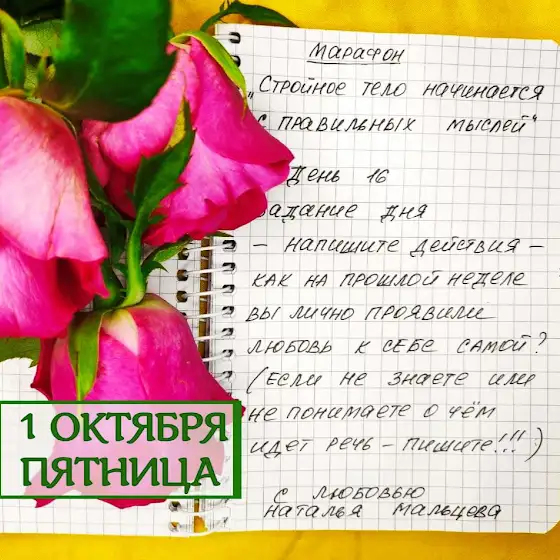 Марафон
„Стройное тело начинается
с правильных мыслей“
День 16
Задание дня
- напишите действия -
как на прошлой неделе
вы лично проявили
любовь к себе самой?
(если не знаете или
не понимаете о чём
идет речь - пишите!!!)
с любовью
Наталья Мальцева
1 ОКТЯБРЯ
ПЯТНИЦА